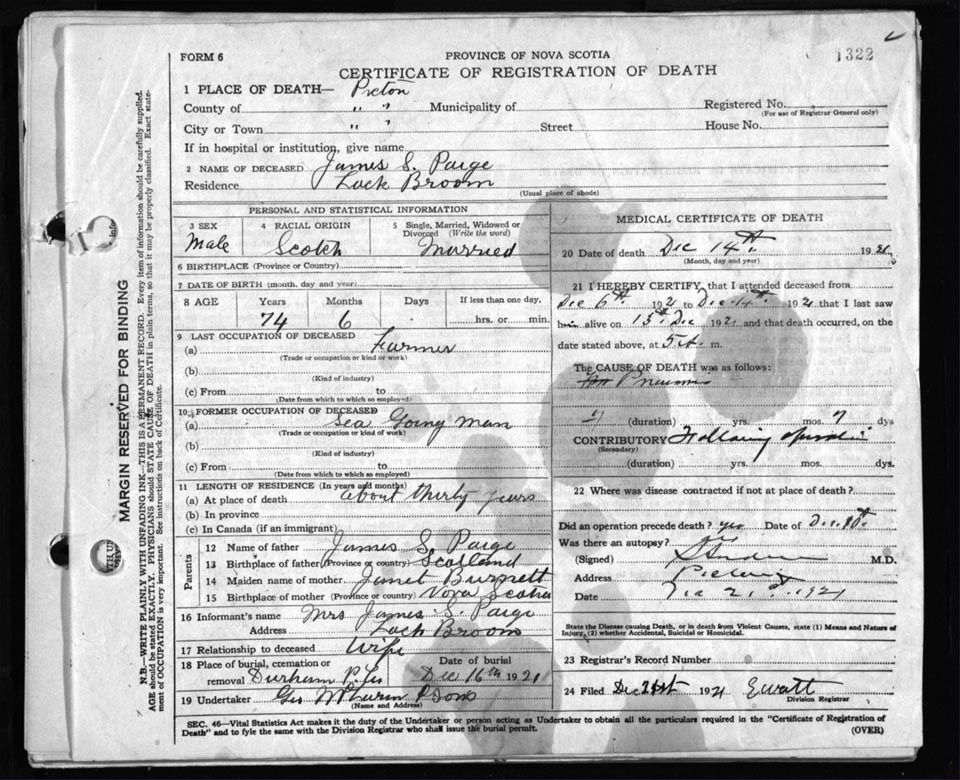 1322
FORM 6
PROVINCE OF NOVA SCOTIA
CERTIFICATE OF REGISTRATION OF DEATH
1 PLACE OF DEATH— Pictou
County of " " Municipality of Registered No.
(For use of Registrar General only)
City or Town " " Street House No.
If in hospital or institution, give name
2 NAME OF DECEASED James S. Paige
Residence Lock Broom
(Usual place of abode)
PERSONAL AND STATISTICAL INFORMATION
3 SEX 4 RACIAL ORIGIN 5 Single, Married, Widowed or Divorced (Write the word)
Male Scotch Married
6 BIRTHPLACE (Province or Country)
7 DATE OF BIRTH (month, day and year)
8 AGE Years Months Days If less than one day,
74 6 hrs. or min.
9 LAST OCCUPATION OF DECEASED
(a) Farmer
(Trade or occupation or kind of work)
(b)
(Kind of industry)
(c) From to
(Date from which to which so employed)
10 FORMER OCCUPATION OF DECEASED
(a) Sea Going Man
(Trade or occupation or kind of work)
(b)
(Kind of industry)
(c) From to
(Date from which to which so employed)
11 LENGTH OF RESIDENCE (In years and months)
(a) At place of death about thirty years
(b) In province
(c) In Canada (if an immigrant)
Parents
12 Name of father James S. Paige
13 Birthplace of father (Province or country) Scotland
14 Maiden name of mother Janet Burnett
15 Birthplace of mother (Province or country) Nova Scotia
16 Informant's name Mrs James S. Paige
Address Lock Broom
17 Relationship to deceased Wife
18 Place of burial, cremation or removal Durham P. Co Date of burial Dec 16th 1921
19 Undertaker Geo & Sons
(Name and Address)
MEDICAL CERTIFICATE OF DEATH
20 Date of death Dec 14th 1921
(Month, day and year)
21 I HEREBY CERTIFY, that I attended deceased from
Dec 6th 1921 to Dec 14th 1921 that I last saw
him alive on 13th Dec 1921 and that death occurred, on the
date stated above, at 5 A. m.
The CAUSE OF DEATH was as follows:
Pneumonia
(duration) yrs. mos. 7 dys
CONTRIBUTORY Following operation
(Secondary)
(duration) yrs. mos. dys.
22 Where was disease contracted if not at place of death?
Did an operation precede death? yes Date of Dec. 8th
Was there an autopsy?
(Signed) M.D.
Address Pictou
Date Dec 21st 1921
State the Disease causing Death, or in death from Violent Causes, state (1) Means and Nature of
Injury, (2) whether Accidental, Suicidal or Homicidal.
23 Registrar's Record Number
24 Filed Dec 21st 1921 E Watt
Division Registrar
SEC. 46—Vital Statistics Act makes it the duty of the Undertaker or person acting as Undertaker to obtain all the particulars required in the "Certificate of Registration of
Death" and to fyle the same with the Division Registrar who shall issue the burial permit. (OVER)
MARGIN RESERVED FOR BINDING
N.B.—WRITE PLAINLY WITH UNFADING INK—THIS IS A PERMANENT RECORD. Every item of information should be carefully supplied.
AGE should be stated EXACTLY. PHYSICIANS should STATE CAUSE OF DEATH in plain terms, so that it may be properly classified. Exact state-
ment of OCCUPATION is very important. See instructions on back of Certificate.